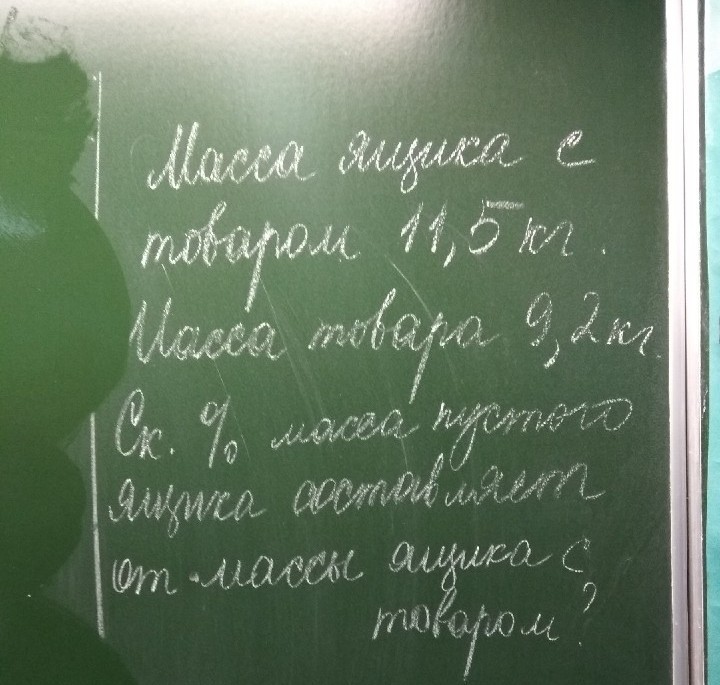 Масса ящика с
товаром 11,5 кг.
Масса товара 9,2 кг.
Ск. % масса пустого
ящика составляет
от массы ящика с
товаром?